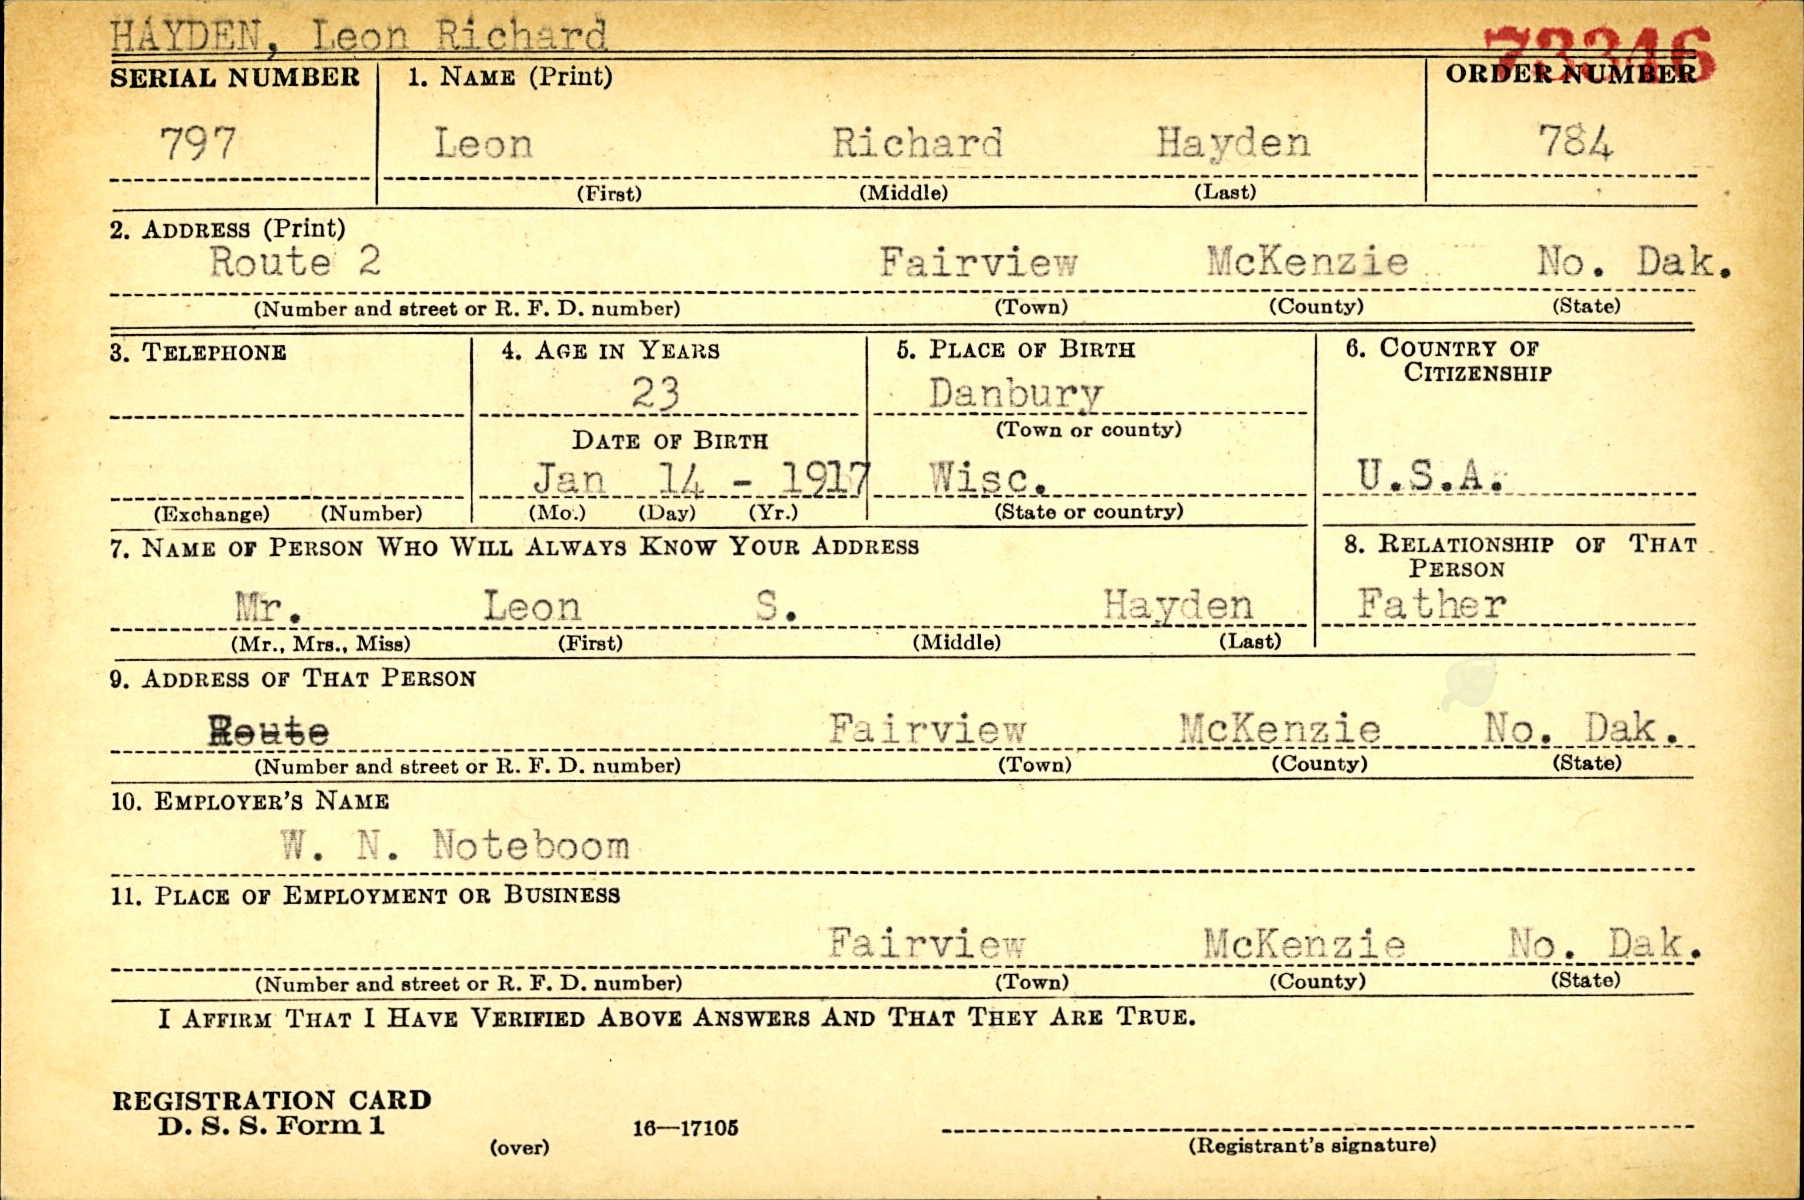 HAYDEN, Leon Richard 73346
SERIAL NUMBER 1. NAME (Print) ORDER NUMBER
797 Leon Richard Hayden 784
(First) (Middle) (Last)
2. ADDRESS (Print)
Route 2 Fairview McKenzie No. Dak.
(Number and street or R. F. D. number) (Town) (County) (State)
3. TELEPHONE 4. AGE IN YEARS 5. PLACE OF BIRTH 6. COUNTRY OF
CITIZENSHIP
23 Danbury
DATE OF BIRTH (Town or county)
Jan 14 - 1917 Wisc. U.S.A.
(Exchange) (Number) (Mo.) (Day) (Yr.) (State or country)
7. NAME OF PERSON WHO WILL ALWAYS KNOW YOUR ADDRESS 8. RELATIONSHIP OF THAT
PERSON
Mr. Leon S. Hayden Father
(Mr., Mrs., Miss) (First) (Middle) (Last)
9. ADDRESS OF THAT PERSON
Route Fairview McKenzie No. Dak.
(Number and street or R. F. D. number) (Town) (County) (State)
10. EMPLOYER'S NAME
W. N. Noteboom
11. PLACE OF EMPLOYMENT OR BUSINESS
Fairview McKenzie No. Dak.
(Number and street or R. F. D. number) (Town) (County) (State)
I AFFIRM THAT I HAVE VERIFIED ABOVE ANSWERS AND THAT THEY ARE TRUE.
REGISTRATION CARD
D. S. S. Form 1
(over) 16—17105
(Registrant's signature)